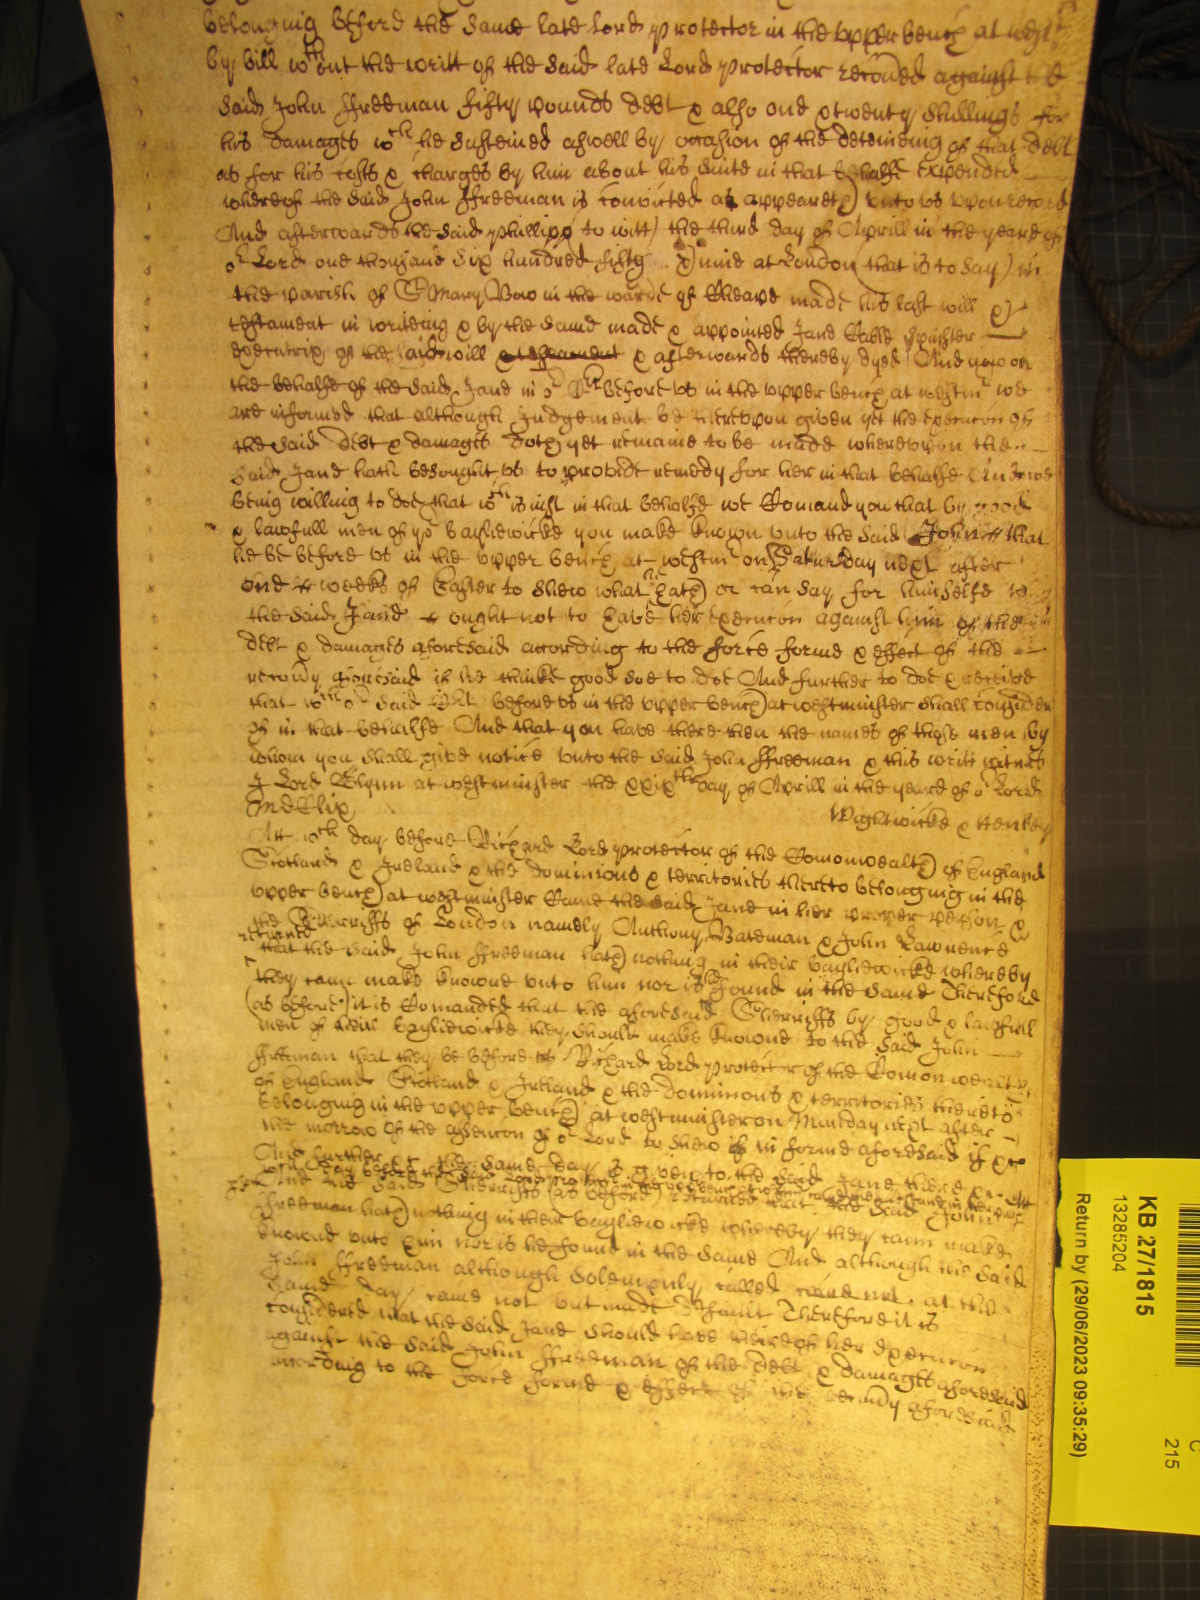 belonging before the same late Lord protector in the upper bench at westm
by bill wthout the writt of the said late Lord protector recoũed against the
said John Ffreeman fifty pounds debt & also one & twenty shillings for
his damages wch he susteined aswell by occasion of the deteineing of that debt
as for his costs & charges by him about his suite in that behalfe expended
whereof the said John Ffreeman is convicted as appeareth unto us upon record
And afterwards the said Phillipp to witt the third day of Aprill in the yeare of
or Lord one thousand six hundred fifty & nine at London that is to say in
the parish of St Mary Bow in the warde of Cheape made his last will &
testament in writeing & by the same made & appointed Jane Cable spinster
executrix of the said will & testament & afterwards thereby dyed And now on
the behalfe of the said Jane in or Cort before us in the upper bench at westmr we
are informed that although Judgement be thereupon given yet the execucon of
the said debt & damages doth yet remaine to be made whereupon the
said Jane hath besought us to provide remedy for her in that behalfe And we
being willing to doe that wch is just in that behalfe we Comand you that by good
& lawfull men of yor bayliewicke you make known unto the said John that
he be before us in the upper bench at westmr on Saturday next after
one weeks of Easter to shew what he hath or can say for himselfe why
the said Jane ought not to have her execucon against him of the
debt & damages aforesaid according to the force forme & effect of the
recovy aforesaid if he thinke good soe to doe And further to doe & receive
that wch or said Cort before us in the upper bench at westminster shall consider
of in that behalfe And that you have there then the names of those men by
whom you shall give notice unto the said John Ffreeman & this writt witnes
J Lord Glynn at westminster the xxixth day of Aprill in the yeare of or Lord
MDCLIX
Wightwicke & Henley
Att wch day before Richard Lord protector of the Comonwealth of England
Scotland & Ireland & the dominions & territories thereto belonging in the
upper bench at westminster Came the said Jane in her proper person &
the Sherriffs of London namely Anthony Bateman & John Lawrence
returned
that the said John Ffreeman hath nothing in their bayliewicke whereby
they cann make knowne unto him nor is he found in the same Therefore
(as before) it is Comanded that the aforesaid Sherriffs by good & lawfull
men of their bayliewicke they should make knowne to the said John
Ffreeman that they be before us Richard Lord protector of the Comonwealth
of England Scotland & Ireland & the dominions & territories thereto
belonging in the upper bench at westminster on Munday next after
the morrow of the assencon of or Lord to shew if in forme aforesaid if &c
And further &c the same day is given to the said Jane there &c Att
wch day before the said Lord
And the said Sherriffs (as before) returned that the said John
Ffreeman hath nothing in their bayliewicke whereby they cann make
knowne unto him nor is he found in the same And although the said
John Ffreeman although solempnly called came not at the
same day came not but made default Therefore it is
considered that the said Jane should have thereof her execucon
against the said John Ffreeman of the debt & damages aforesaid
according to the force forme & effect of the recovy aforesaid
KB 27/1815
13285204
Return by (29/06/2023 09:35:29)
C
215